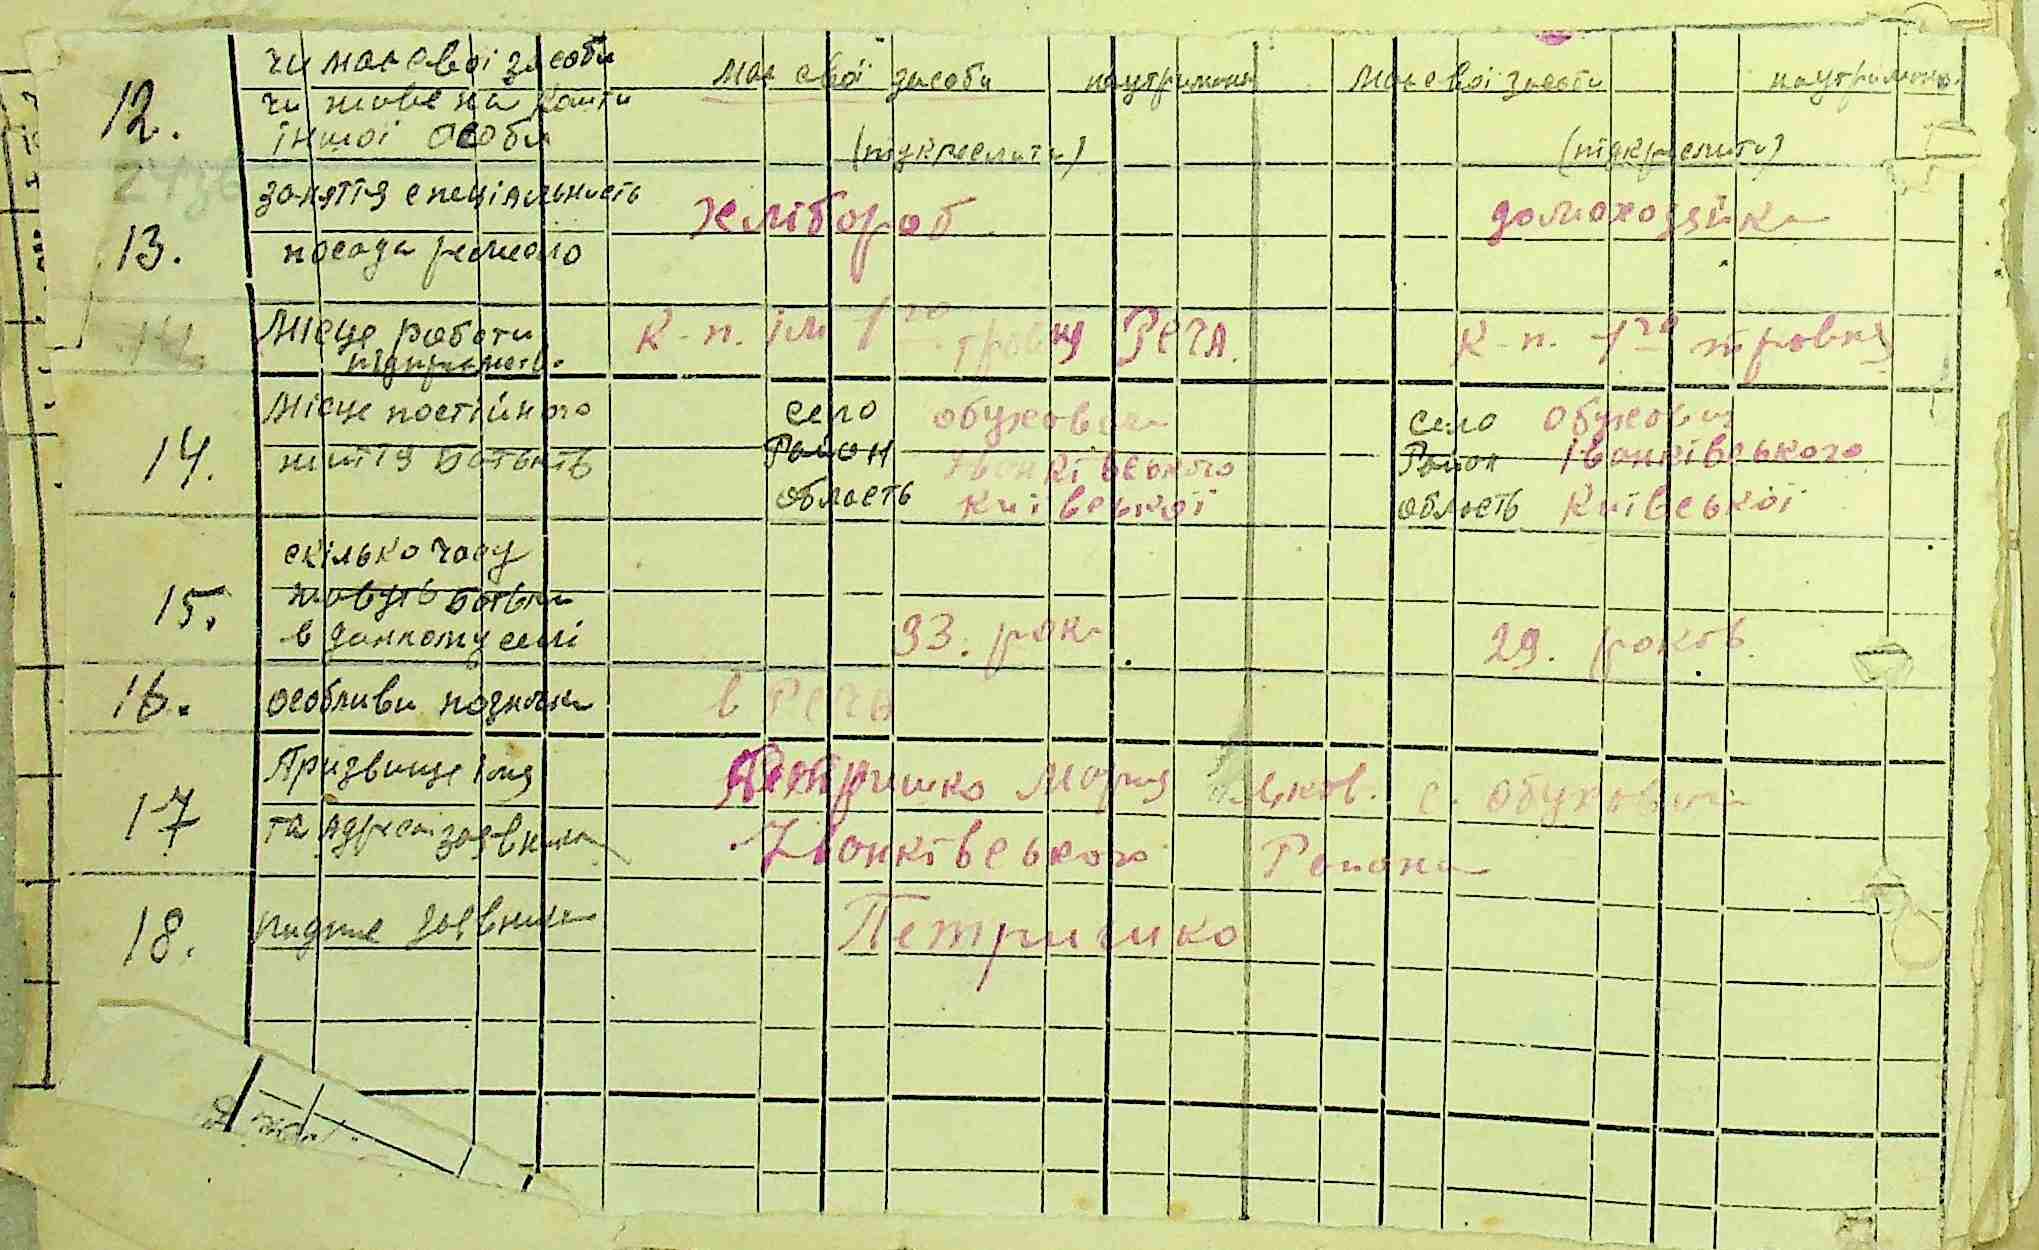 12. чи має свої засоби має свої засоби наутримани має свої засоби наутримани
чи живе на кошти
іншої особи (підкреслити) (підкреслити)
13. заняття спеціальність хлібороб домохозяйка
посада ремесло
14. Місце роботи к-п. ім 1го травня РСЧА. к-п. 1го травня
підприємств.
14. Місце постійного село Обуховичи село Обуховичи
життя батьків Район Іванківського Район Іванківського
область Київської область Київської
15. скілько часу
живуть батьки
в данному селі 33. роки 29. років
16. особливи позначки в РСЧА
17 Призвище імя Петришко Мария Яков. с. Обуховичи
та адреса заявника Іванківського Района
18. підпис заявника Петришко